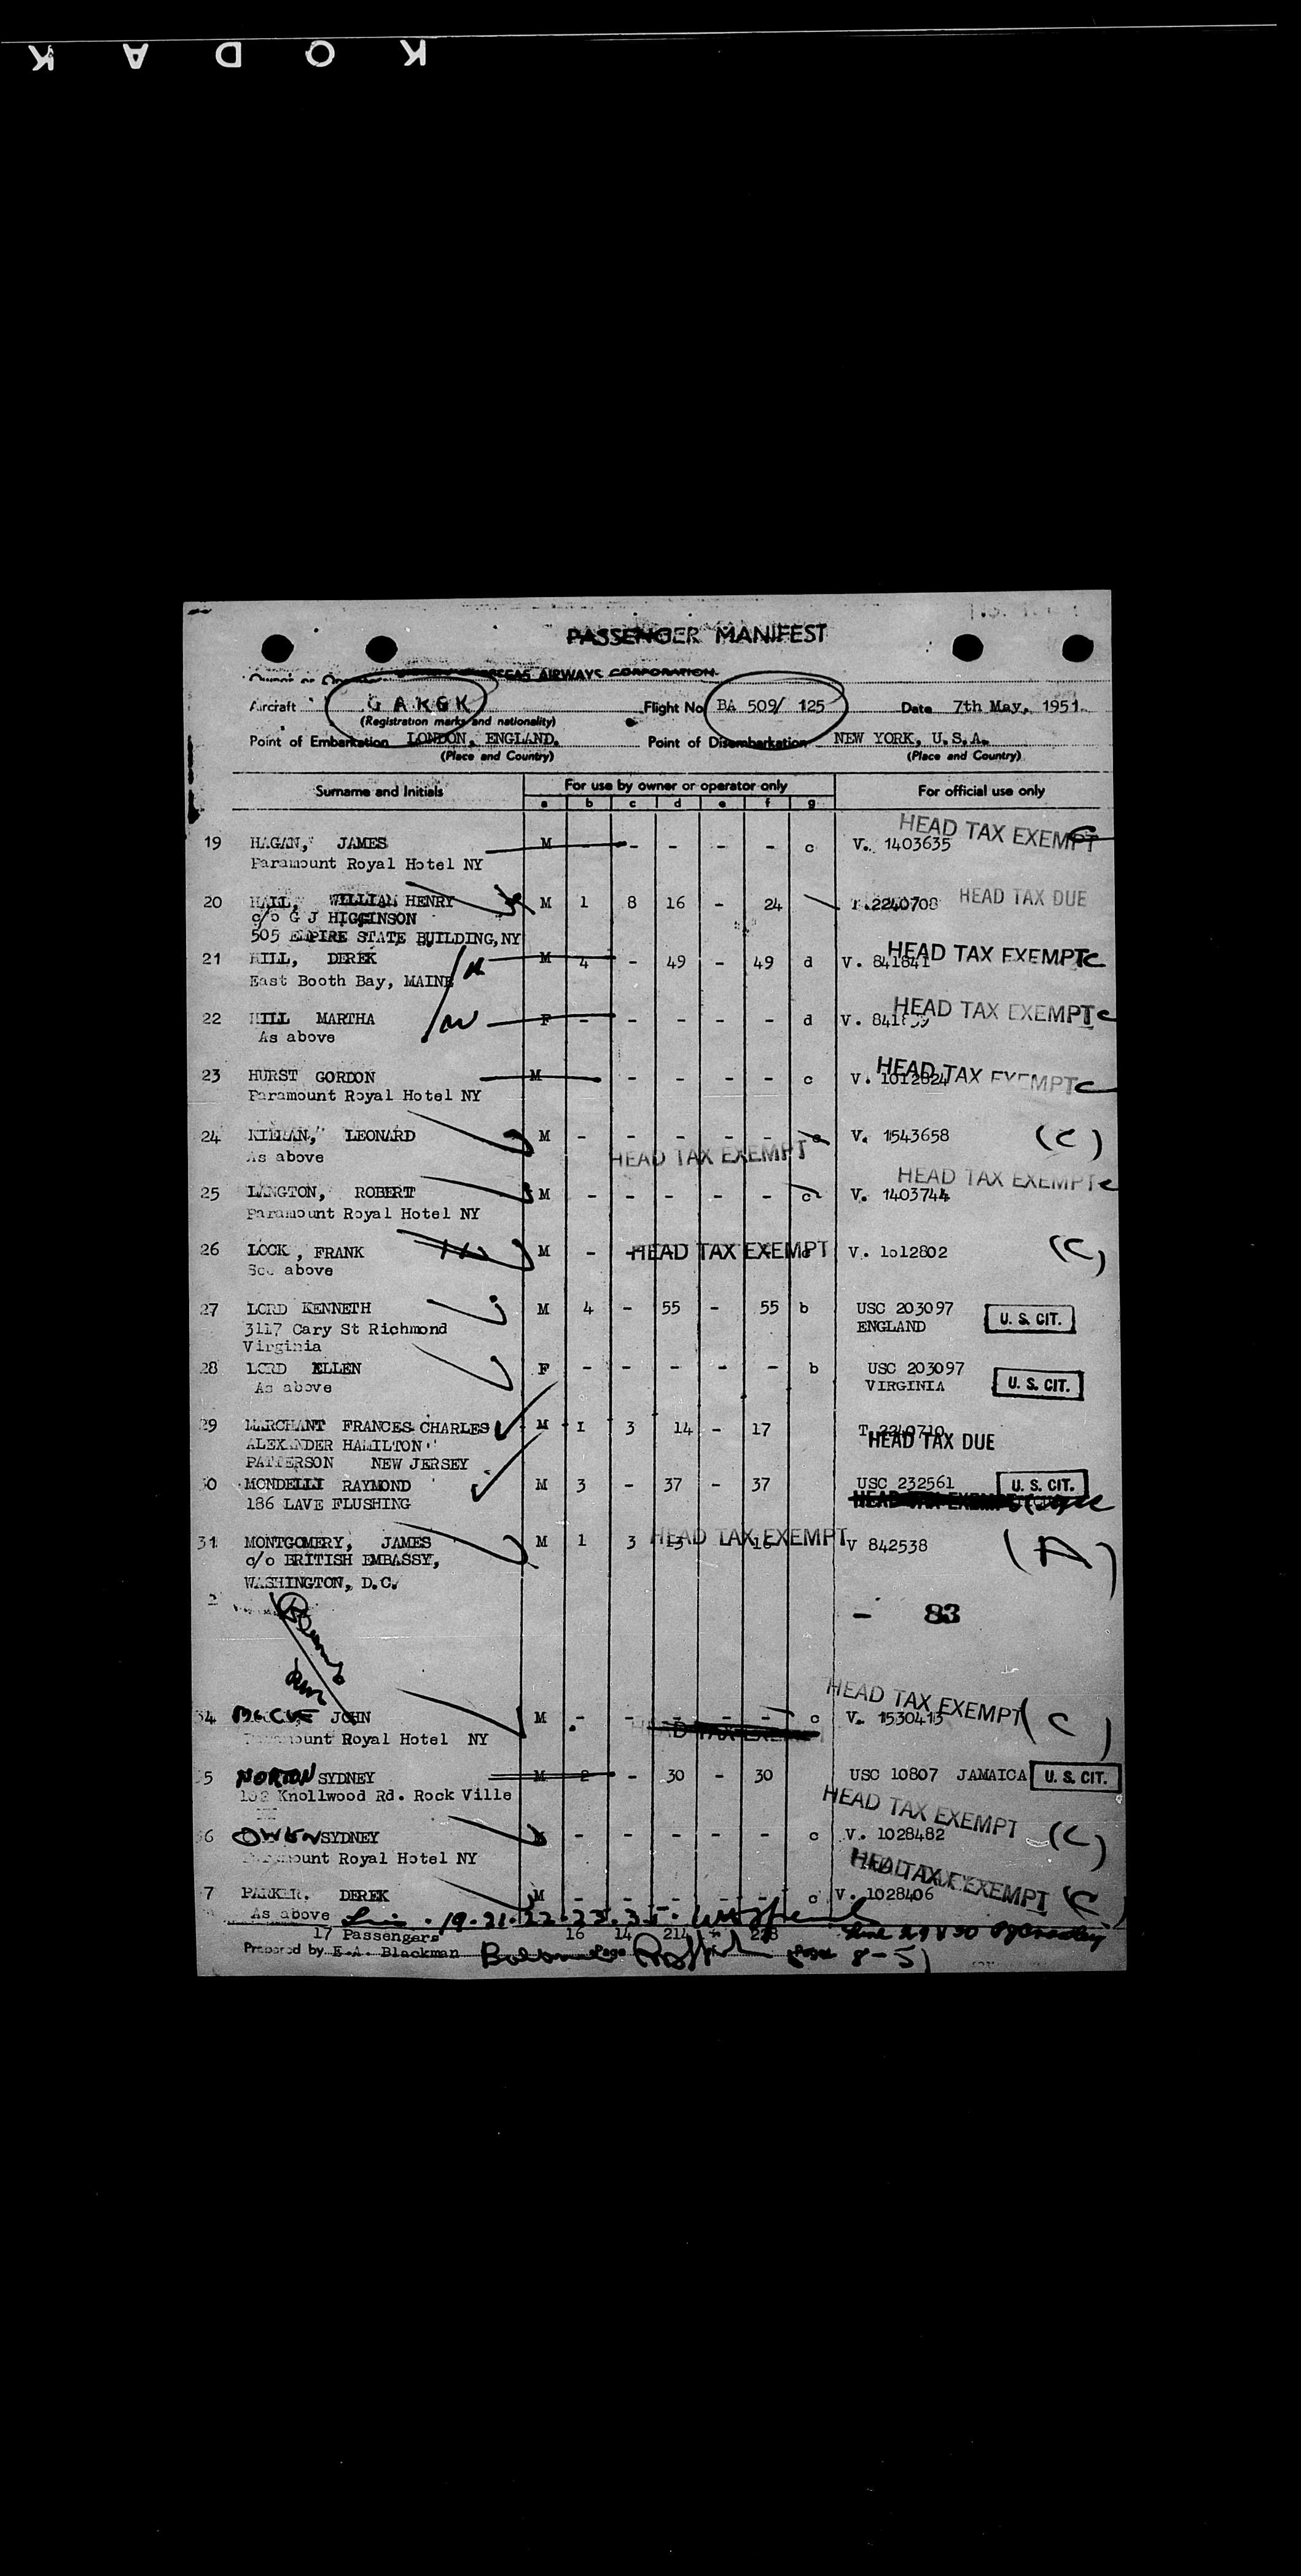 KODAK
PASSENGER MANIFEST
OVERSEAS AIRWAYS CORPORATION
Aircraft G AKGK Flight No BA 509/ 125 Date 7th May, 1951.
(Registration marks and nationality)
Point of Embarkation LONDON, ENGLAND. Point of Disembarkation NEW YORK, U.S.A.
(Place and Country) (Place and Country)
Surname and Initials For use by owner or operator only For official use only
a b c d e f g
HEAD TAX EXEMPT
19 HAGAN, JAMES M - - - - - c V. 1403635
Paramount Royal Hotel NY
20 HAIL, WILLIAM HENRY M 1 8 16 - 24 T.2240708 HEAD TAX DUE
c/o G J HIGGINSON
505 EMPIRE STATE BUILDING, NY
21 HILL, DEREK M 4 - 49 - 49 d V. 841841 HEAD TAX EXEMPT C
East Booth Bay, MAINE
22 HILL MARTHA F - - - - - - d V. HEAD TAX EXEMPT C
As above
23 HURST GORDON M - - - - c V. 1012824 HEAD TAX EXEMPT C
Paramount Royal Hotel NY
24 LEONARD M - - - - - - c V. 1543658 (C)
As above HEAD TAX EXEMPT
HEAD TAX EXEMPT C
25 LANGTON, ROBERT M - - - - - c V. 1403744
Paramount Royal Hotel NY
26 LOCK, FRANK M - HEAD TAX EXEMPT V. 1012802 (C)
See above
27 LORD KENNETH M 4 - 55 - 55 b USC 203097 U. S. CIT.
3117 Cary St Richmond ENGLAND
Virginia
28 LORD ELLEN F - - - - - b USC 203097
As above VIRGINIA U. S. CIT.
29 MARCHANT FRANCES CHARLES M I 3 14 - 17 T. 2240710
ALEXANDER HAMILTON HEAD TAX DUE
PATTERSON NEW JERSEY
30 MONDELLI RAYMOND M 3 - 37 - 37 USC 232561 U. S. CIT.
186 LAVE FLUSHING HEAD TAX EXEMPT
31 MONTGOMERY, JAMES M 1 3 13 16 HEAD TAX EXEMPT V 842538 (A)
c/o BRITISH EMBASSY,
WASHINGTON, D.C.
2
- 83
HEAD TAX EXEMPT (C)
34 JOHN M - - - - - - c V. 1530415
Paramount Royal Hotel NY HEAD TAX EXEMPT
35 NORTON SYDNEY M 2 - 30 - 30 USC 10807 JAMAICA U. S. CIT.
Knollwood Rd. Rock Ville
HEAD TAX EXEMPT (C)
36 OWEN SYDNEY M - - - - - c V. 1028482
Paramount Royal Hotel NY
HEAD TAX EXEMPT (C)
37 PARKER. DEREK M - - - - - c V. 1028406
As above 19.21.22.23.35.
17 Passengers 16 14 214 228
Prepared by E.A. Blackman Page Pages 8-5